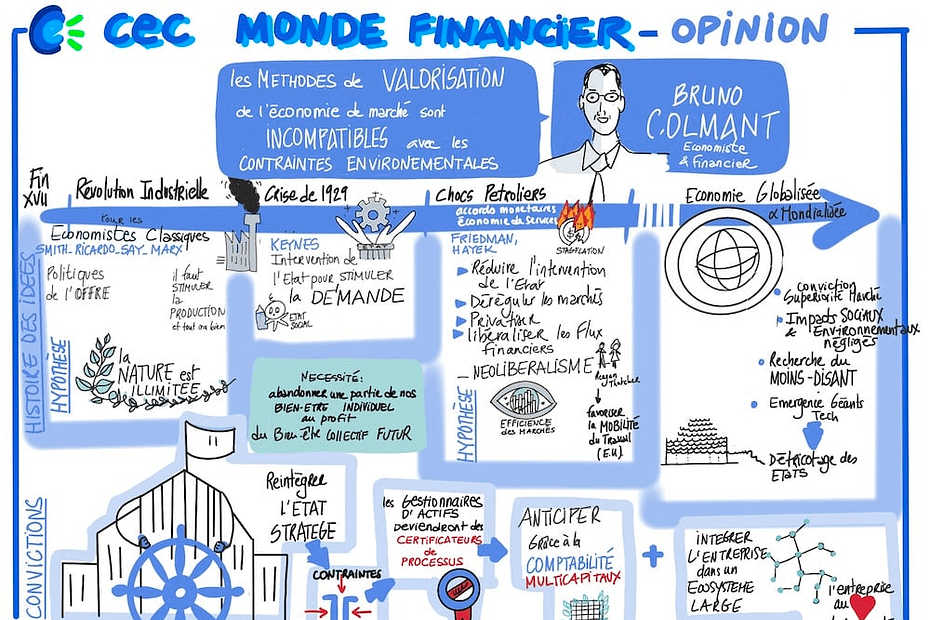 cec MONDE FINANCIER - OPINION
les METHODES de VALORISATION
de l'économie de marché sont
INCOMPATIBLES avec les
CONTRAINTES ENVIRONEMENTALES
BRUNO
COLMANT
Economiste
& Financier
Fin
XVII
Révolution Industrielle
Crise de 1929
Chocs Pétroliers
accords monétaires
économie du Services
Economie Globalisée
& Mondialisée
HISTOIRE DES IDÉES
Pour les
Economistes Classiques
SMITH_RICARDO_SAY_MARX
Politiques
de l'OFFRE
il faut
STIMULER
la
PRODUCTION
et tout ira bien
HYPOTHÈSE
la
NATURE est
ILLIMITÉE
KEYNES
Intervention de
l'Etat pour STIMULER
la DEMANDE
ETAT
ETAT
SOCIAL
FRIEDMAN,
HAYEK
STAGFLATION
Réduire l'intervention
de l'Etat
Déréguler les marchés
Privatiser
libéraliser les Flux
financiers
_ NEOLIBERALISME
Reagan Thatcher
HYPOTHÈSE
EFFICIENCE
des MARCHÉS
favoriser
la MOBILITÉ
du Travail
(E.U.)
conviction
Supériorité Marché
Impacts SOCIAUX
& Environnementaux
négligés
Recherche du
MOINS-DISANT
Emergence Géants
Tech
Détricotage des
ETATS
NECESSITÉ:
abandonner une partie de nos
BIEN-ETRE INDIVIDUEL
au profit
du Bien-être COLLECTIF FUTUR
CONVICTIONS
Reintégrer
L'ETAT
STRATEGE
CONTRAINTES
les Gestionnaires
D'ACTIFS
Deviendront des
CERTIFICATEURS
de
PROCESSUS
ANTICIPER
Grâce à la
COMPTABILITÉ
MULTICAPITAUX
+
INTEGRER
L'ENTREPRISE
dans un
ECOSYSTEME
LARGE
l'entreprise
au